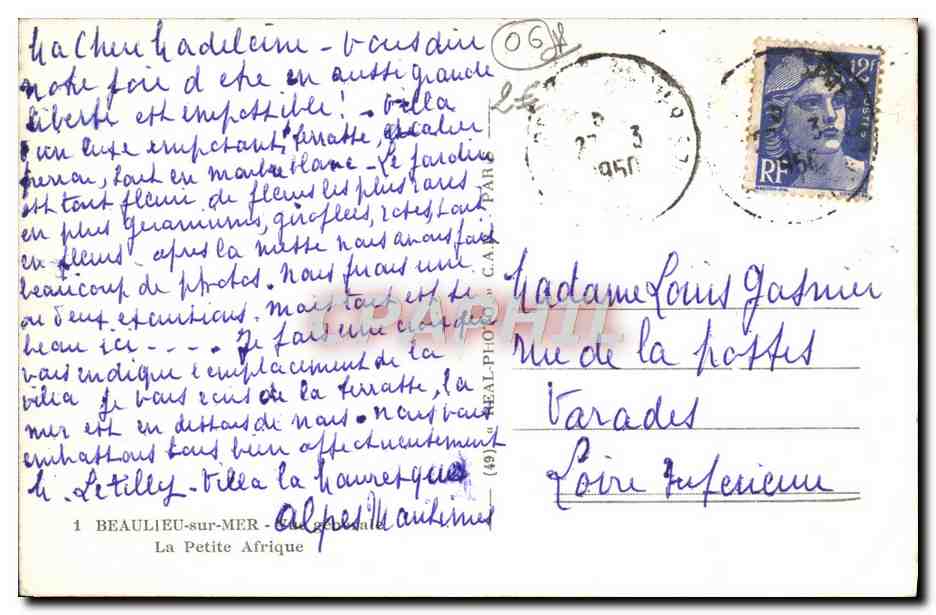 Ma Chere Madeleine - Vous dire
notre joie d etre en aussi grande
liberté est impossible! - Villa
d'un luxe important, terrasse, escalier
perron, tout en marbre blanc - Le jardin
est tout fleuri de fleurs les plus rares
en plus geraniums, giroflées, roses, tout
en fleurs - apres la messe nous avons fait
beaucoup de photos. nous ferons une
ou deux excursions. mais tout est si
beau ici - - - - . Je fais une croix qui
vous indique l emplacement de la
villa Je vous ecris de la terrasse, la
mer est en dessous de nous. nous vous
embrassons tous bien affectueusement
M. Letilly - Villa la Mauresque
Alpes Maritimes
1 BEAULIEU-sur-MER - Vue générale
La Petite Afrique
(49) « REAL-PHOTO » C.A.P. PARIS
06
2€
3
950
12F
POSTES
RF
3
950
Madame Louis Gasnier
rue de la postes
Varades
Loire Inferieure
CPAPHIL